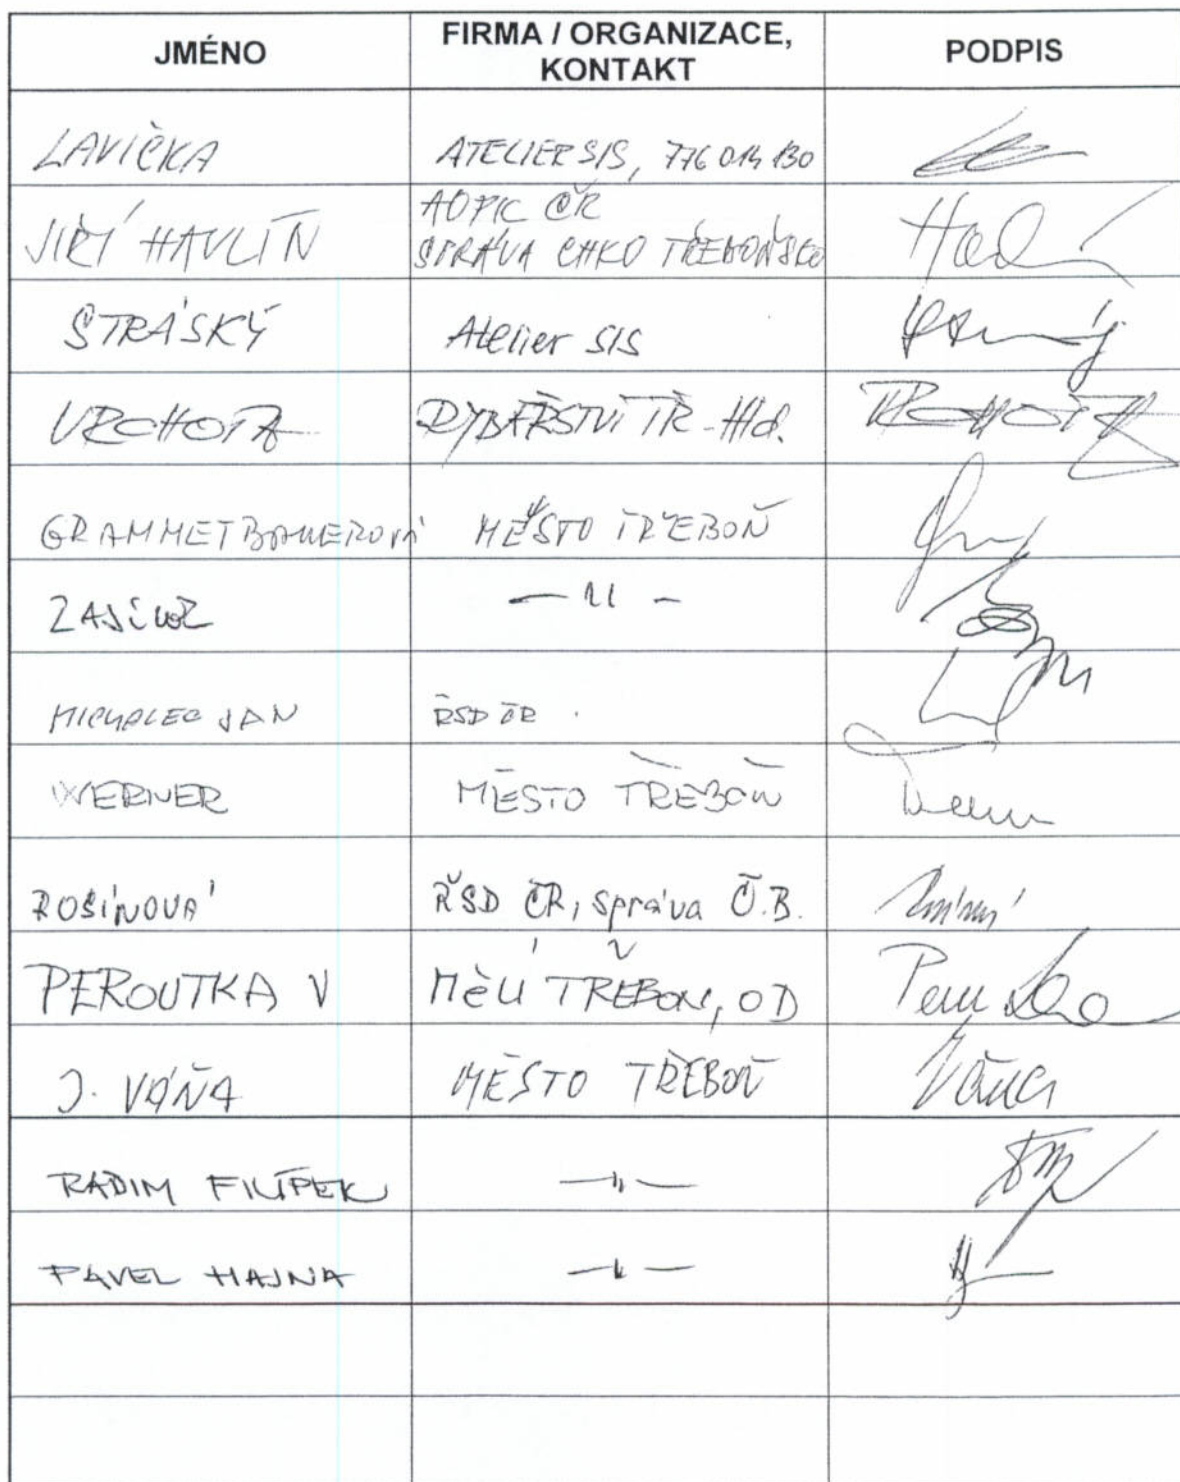 JMÉNO
FIRMA / ORGANIZACE,
KONTAKT
PODPIS
LAVIČKA
ATELIER SIS, 776 014 130
JIŘÍ HAVLÍN
AOPK ČR
SPRÁVA CHKO TŘEBOŇSKO
STRÁSKÝ
Atelier SIS
VRCHOTA
RYBÁŘSTVÍ TŘ. Hld.
VRCHOTA
GRAMMETBAUEROVÁ
MĚSTO TŘEBOŇ
ZAJÍC
— 11 —
MICHALEC JAN
ŘSD ČR
WERNER
MĚSTO TŘEBOŇ
ROSÍNOVÁ
ŘSD ČR, správa Č.B.
PEROUTKA V
MěÚ TŘEBOŇ, OD
J. VÁŇA
MĚSTO TŘEBOŇ
Váňa
RADIM FILÍPEK
— 11 —
PAVEL HAJNA
— 11 —